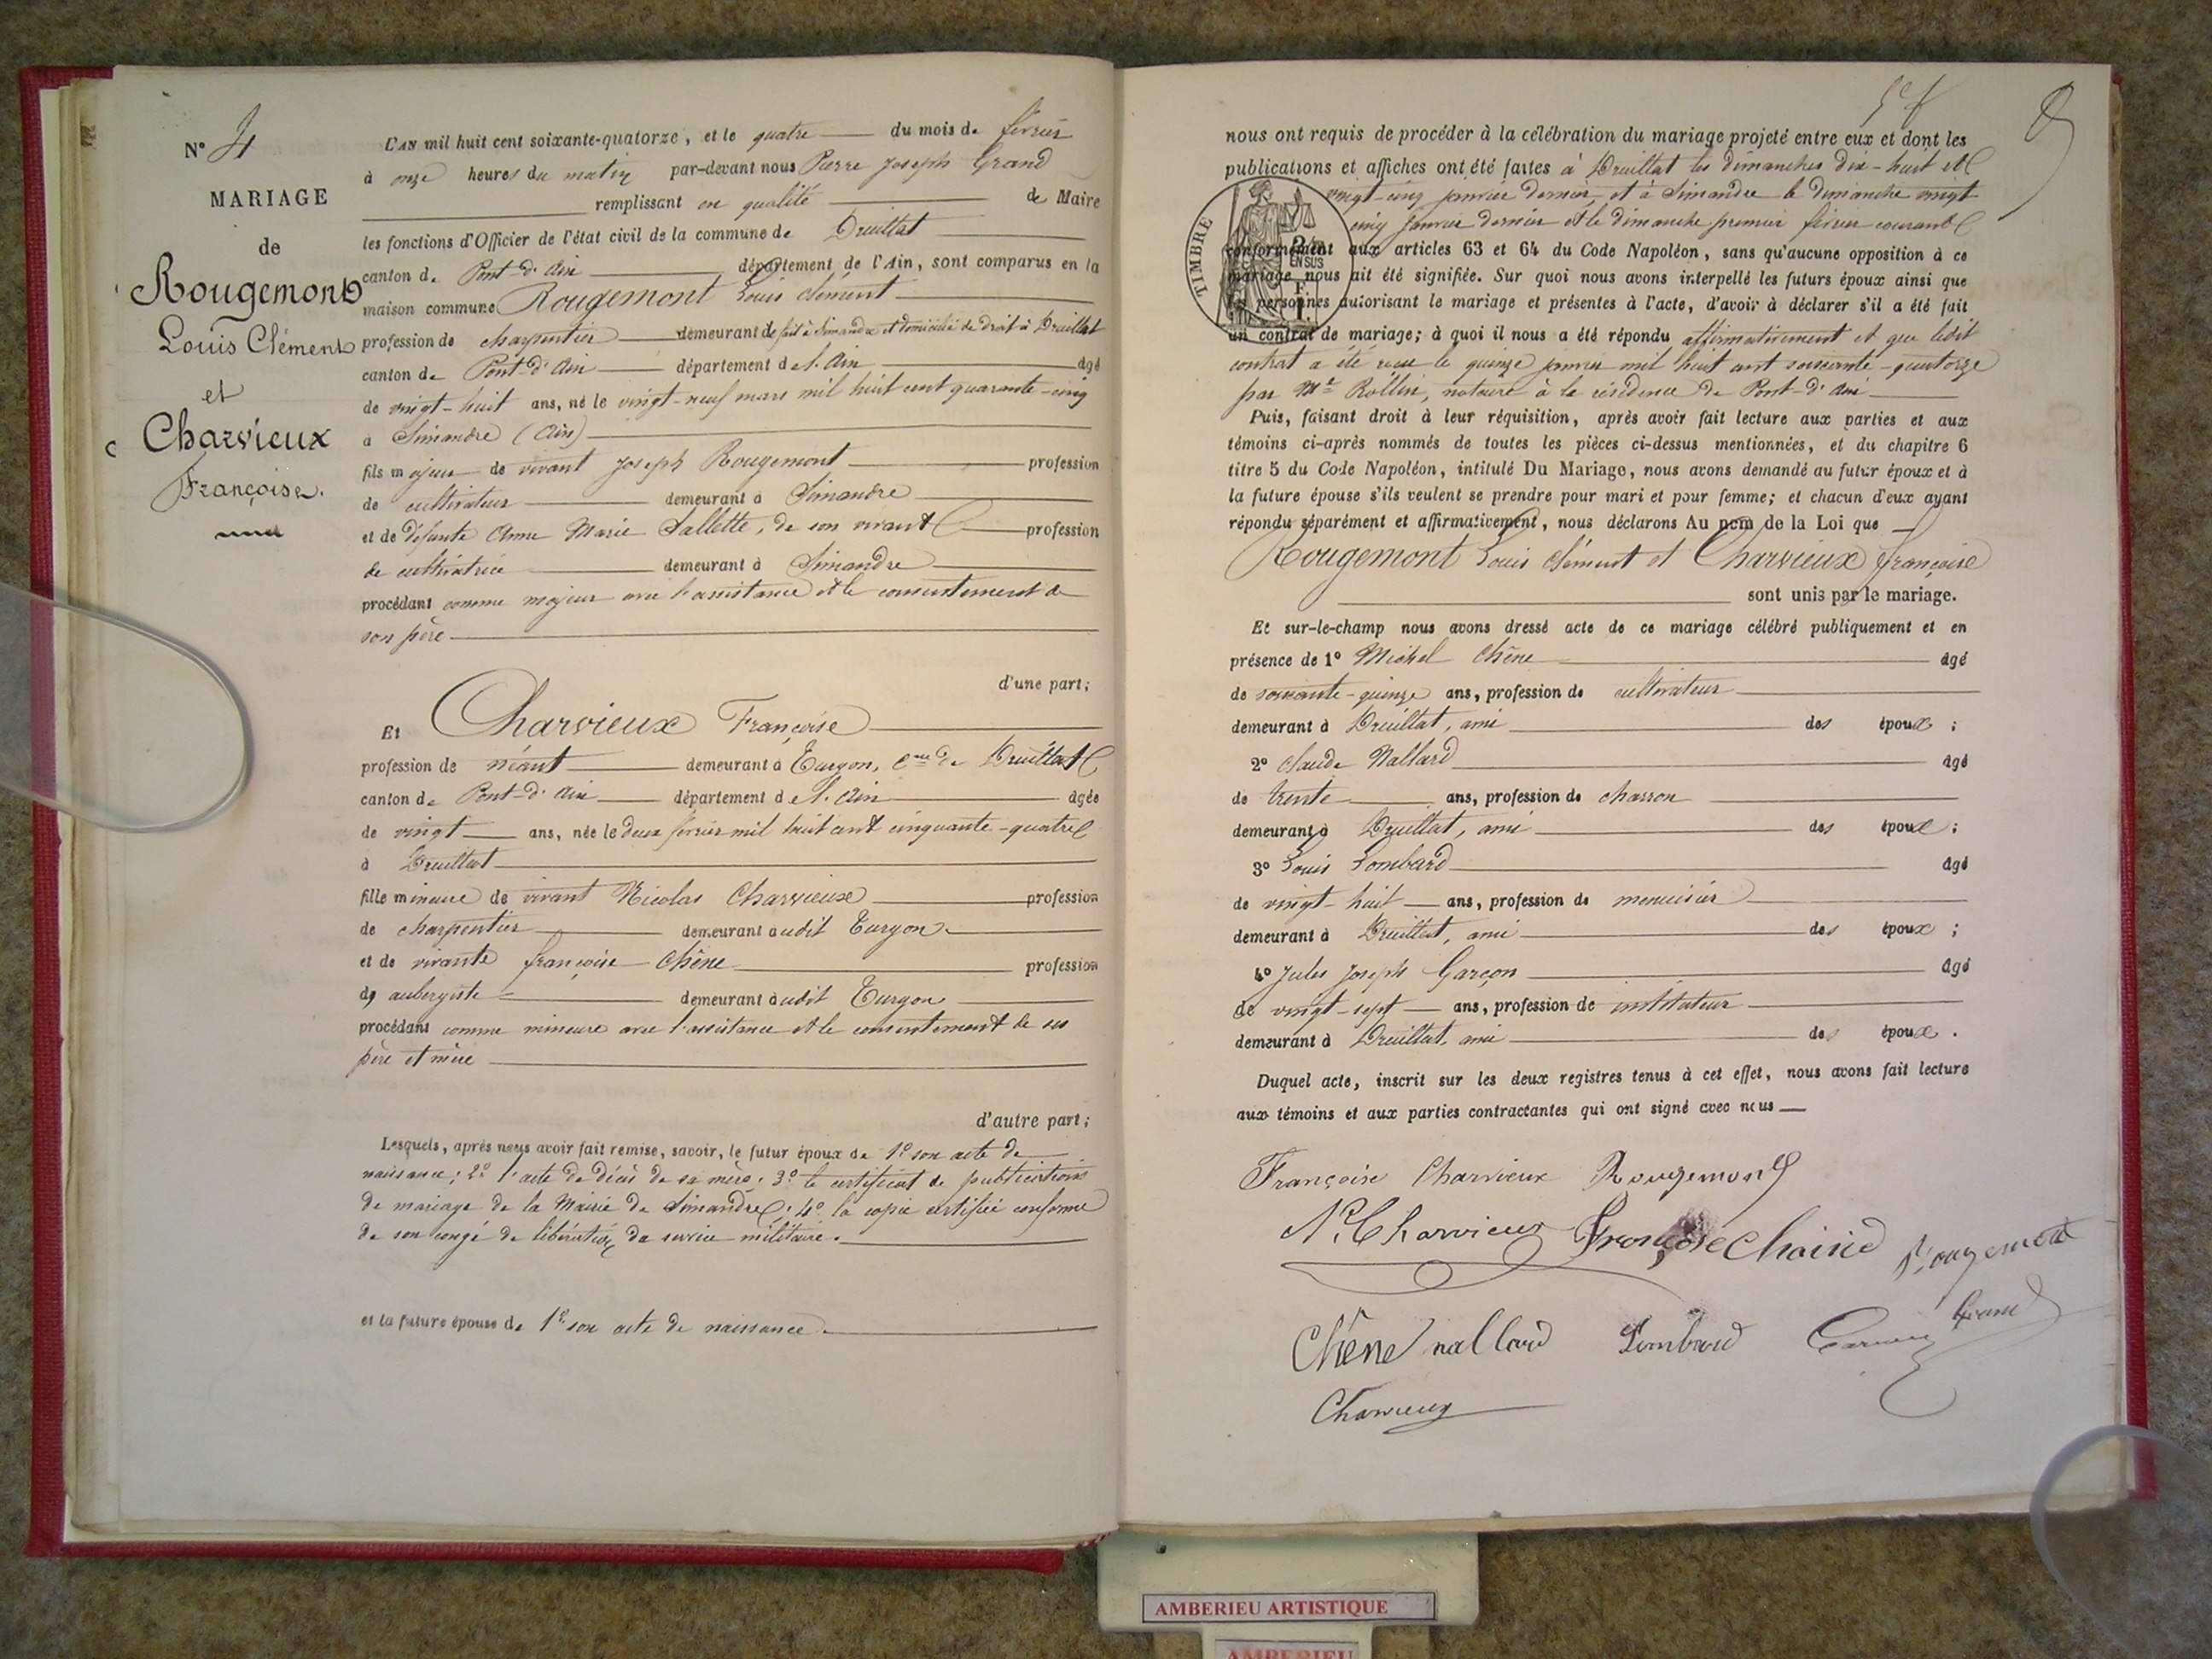 N° 4
MARIAGE
de
Rougemont
Louis Clément
et
Charvieux
Françoise.
L'AN mil huit cent soixante-quatorze, et le quatre du mois de février
à onze heures du matin par-devant nous Pierre Joseph Grand
remplissant en qualité de Maire
les fonctions d'Officier de l'état civil de la commune de Druillat
canton de Pont-d'Ain département de l'Ain, sont comparus en la
maison commune Rougemont Louis Clément
profession de charpentier demeurant de fait à Simandre et domicilié de droit à Druillat
canton de Pont-d'Ain département de l'Ain âgé
de vingt-huit ans, né le vingt-neuf mars mil huit cent quarante-cinq
à Simandre (Ain)
fils majeur de vivant Joseph Rougemont profession
de cultivateur demeurant à Simandre
et de défunte Anne Marie Sallette, de son vivant profession
de cultivatrice demeurant à Simandre
procédant comme majeur avec l'assistance et le consentement de
son père
d'une part;
Et Charvieux Françoise
profession de néant demeurant à Turgon, Cne de Druillat
canton de Pont-d'Ain département de l'Ain âgée
de vingt ans, née le deux février mil huit cent cinquante-quatre
à Druillat
fille mineure de vivant Nicolas Charvieux profession
de charpentier demeurant audit Turgon
et de vivante Françoise Chêne profession
de aubergiste demeurant audit Turgon
procédant comme mineure avec l'assistance et le consentement de ses
père et mère
d'autre part;
Lesquels, après nous avoir fait remise, savoir, le futur époux de 1° son acte de
naissance; 2° l'acte de décès de sa mère; 3° le certificat de publications
de mariage de la Mairie de Simandre; 4° la copie certifiée conforme
de son congé de libération du service militaire.
et la future épouse de 1° son acte de naissance.
nous ont requis de procéder à la célébration du mariage projeté entre eux et dont les
publications et affiches ont été faites à Druillat les dimanches dix-huit et
vingt-cinq janvier dernier, et à Simandre le dimanche vingt-
cinq janvier dernier et le dimanche premier février courant
TIMBRE
conformément aux articles 63 et 64 du Code Napoléon, sans qu'aucune opposition à ce
mariage nous ait été signifiée. Sur quoi nous avons interpellé les futurs époux ainsi que
les personnes autorisant le mariage et présentes à l'acte, d'avoir à déclarer s'il a été fait
un contrat de mariage; à quoi il nous a été répondu affirmativement et que ledit
contrat a été reçu le quinze janvier mil huit cent soixante-quatorze
par Me Rollin, notaire à la résidence de Pont-d'Ain
Puis, faisant droit à leur réquisition, après avoir fait lecture aux parties et aux
témoins ci-après nommés de toutes les pièces ci-dessus mentionnées, et du chapitre 6
titre 5 du Code Napoléon, intitulé Du Mariage, nous avons demandé au futur époux et à
la future épouse s'ils veulent se prendre pour mari et pour femme; et chacun d'eux ayant
répondu séparément et affirmativement, nous déclarons Au nom de la Loi que
Rougemont Louis Clément et Charvieux Françoise
sont unis par le mariage.
Et sur-le-champ nous avons dressé acte de ce mariage célébré publiquement et en
présence de 1° Michel Chêne âgé
de soixante-quinze ans, profession de cultivateur
demeurant à Druillat, ami des époux;
2° Claude Nallard âgé
de trente ans, profession de charron
demeurant à Druillat, ami des époux;
3° Louis Lombard âgé
de vingt-huit ans, profession de menuisier
demeurant à Druillat, ami des époux;
4° Jules Joseph Garçon âgé
de vingt-sept ans, profession de instituteur
demeurant à Druillat, ami des époux.
Duquel acte, inscrit sur les deux registres tenus à cet effet, nous avons fait lecture
aux témoins et aux parties contractantes qui ont signé avec nous
Françoise Charvieux Rougemont
N. Charvieux Françoise Chaine Rougemont
Chêne nallard Lombard Grand
Charvieux
AMBERIEU ARTISTIQUE
AMBERIEU